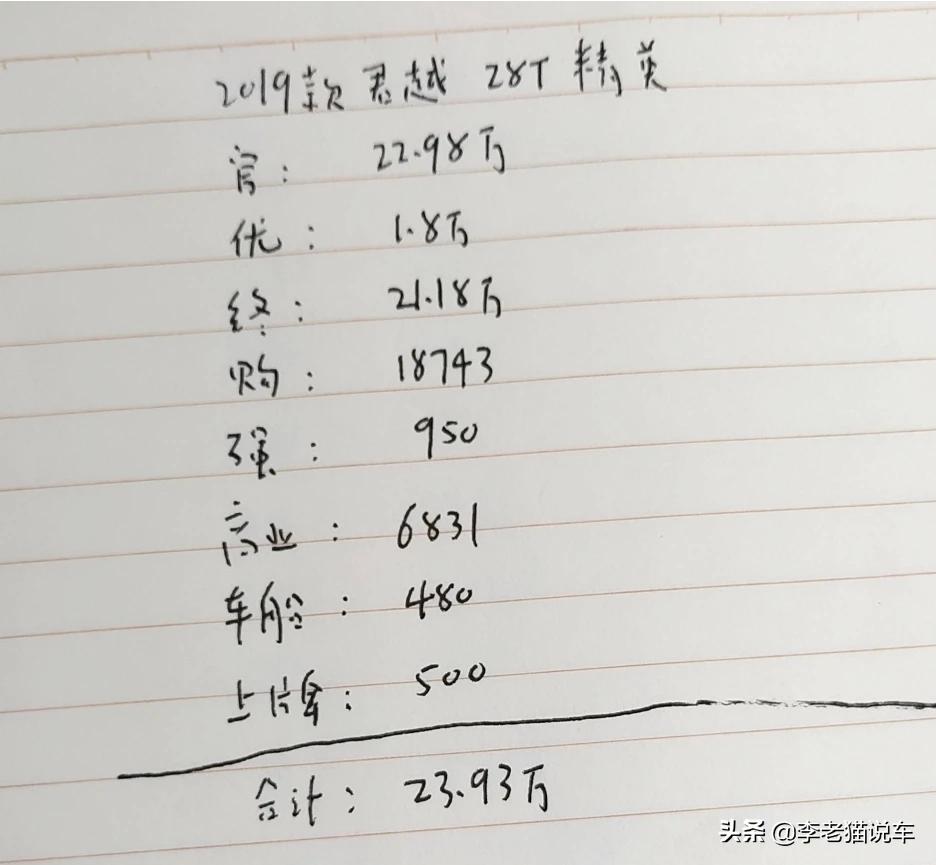 2019款君越 28T 精英
官: 22.98万
优: 1.8万
终: 21.18万
购: 18743
强: 950
商业: 6831
车船: 480
上牌: 500
合计: 23.93万
头条 @李老猫说车